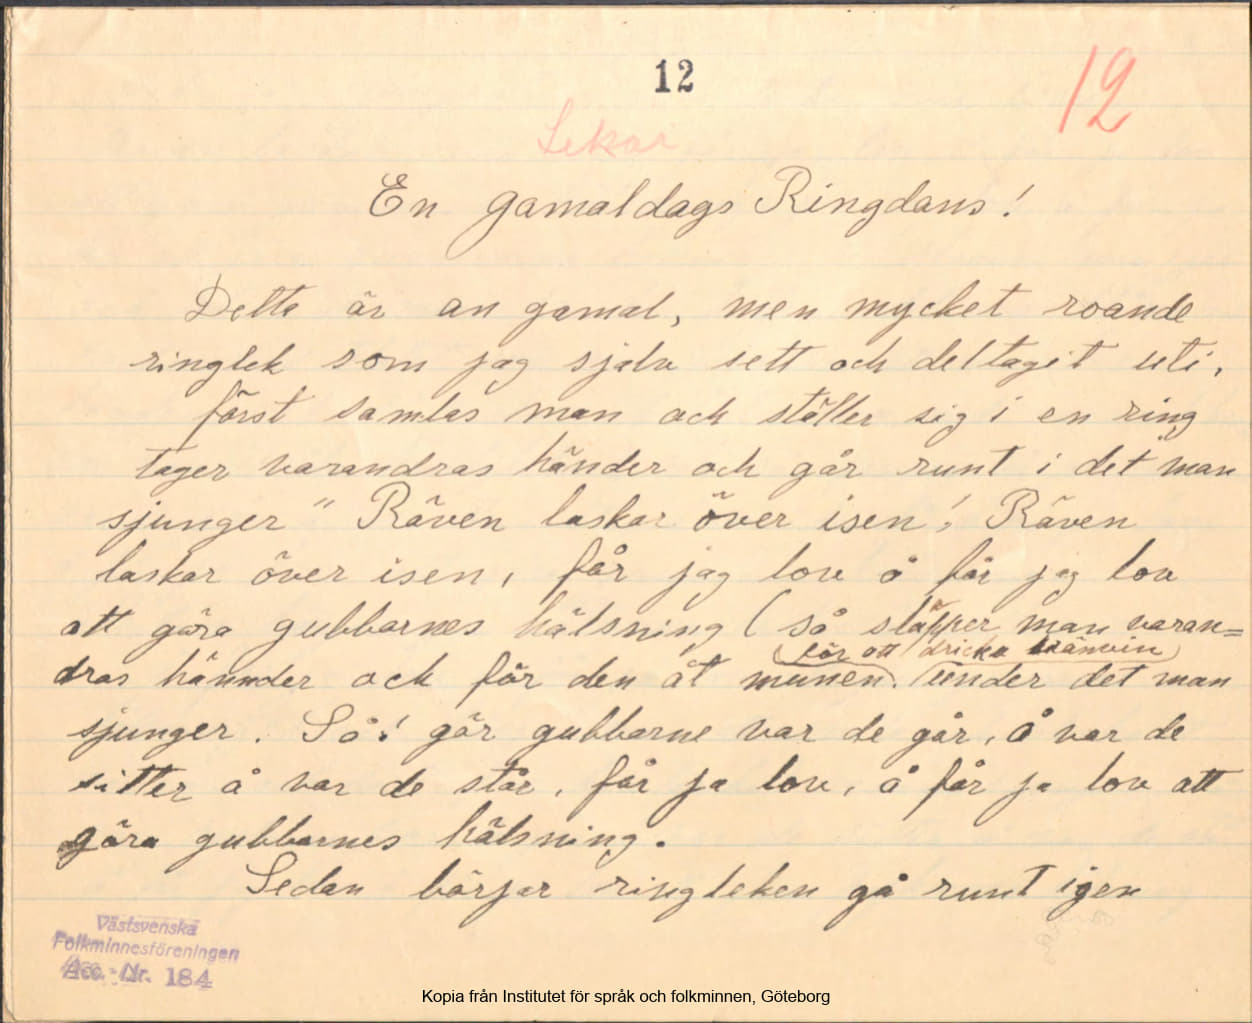 12
12
Lekar
En gamaldags Ringdans!
Detta är an gamal, men mycket roande
ringlek som jag sjelv sett och deltagit uti,
först samlas man och ställer sig i en ring
tager varandras händer och går runt i det man
sjunger " Räven laskar över isen, Räven
laskar över isen, får jag lov å får jag lov
att göra gubbarnes hälsning (så släpper man varan=
för att dricka brämvin
dras hännder ock för den åt munen. under det man
sjunger. Så! gör gubbarne var de går, å var de
sitter å var de står, får ja lov, å får ja lov att
göra gubbarnes hälsning.
Sedan börjar ringleken gå runt igen
Västsvenska
Folkminnesföreningen
Acc.-Nr. 184
Kopia från Institutet för språk och folkminnen, Göteborg